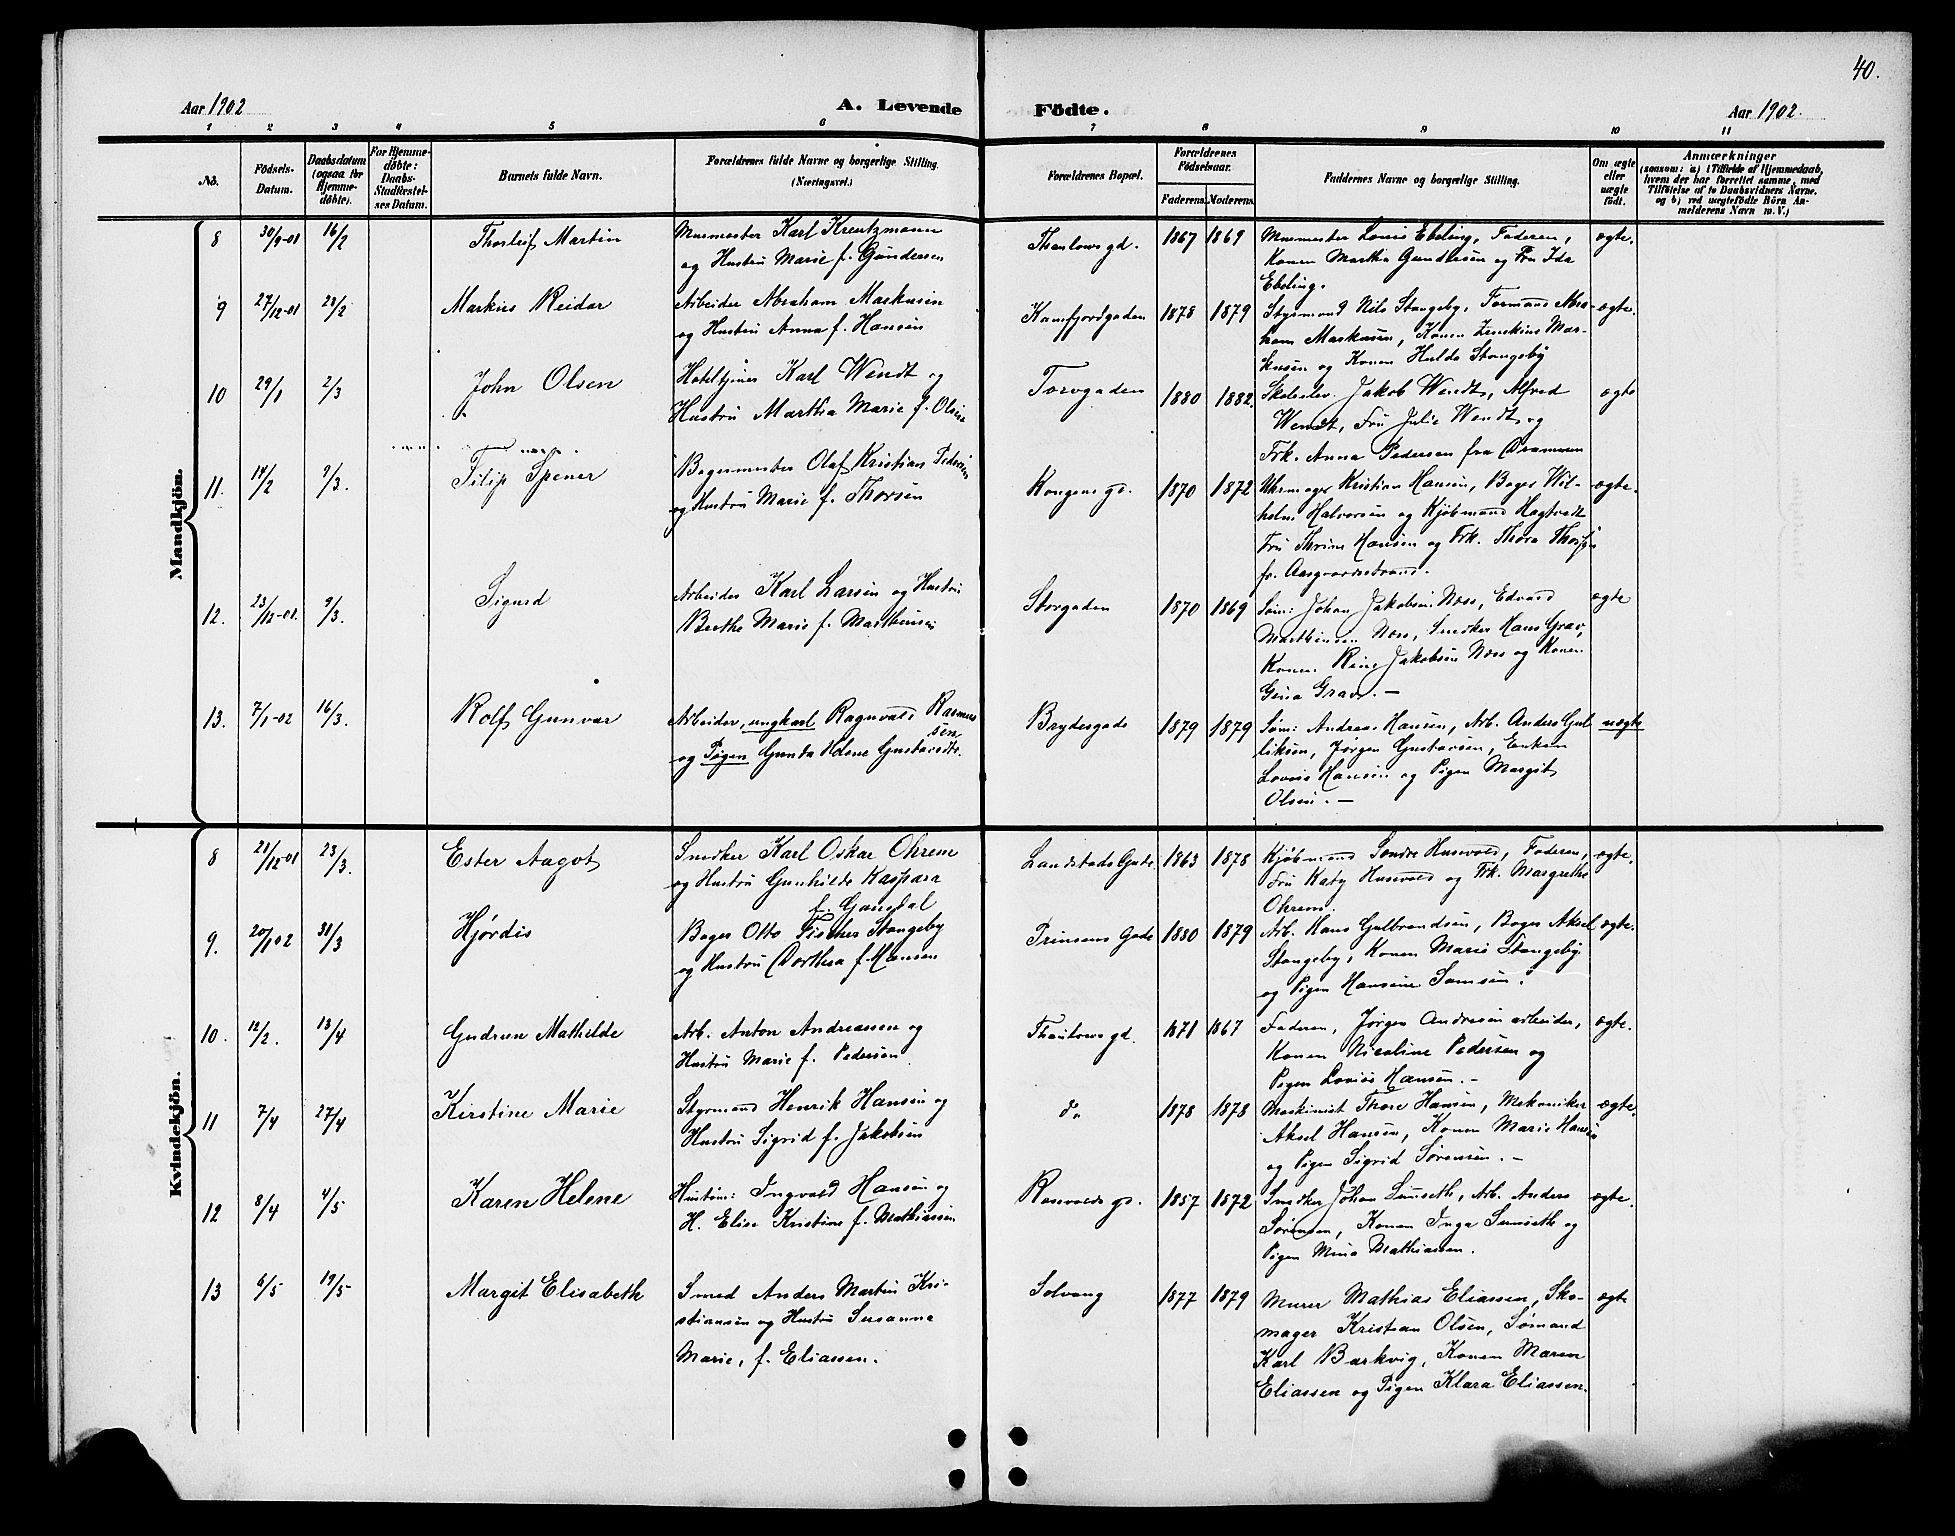 40.
Aar 1902
A. Levende
Födte.
Aar 1902.
1 2 3 4 5 6 7 8 9 10 11
No.
Födsels-
Datum.
Daabsdatum
(ogsaa for
Hjemme-
døbte).
For Hjemme-
døbte:
Daabs-
Stadfæstel-
ses Datum.
Barnets fulde Navn.
Forældrenes fulde Navne og borgerlige Stilling.
(Næringsvei.)
Forældrenes Bopæl.
Forældrenes
Födselsaar.
Faderens. Moderens.
Faddernes Navne og borgerlige Stilling.
Om ægte
eller
uægte
födt.
Anmærkninger
(saasom: a) i Tilfælde af Hjemmedaab,
hvem der har forrettet samme, med
Tilföielse af to Daabsvidners Navne,
og b) ved uægtefödte Börn An-
melderens Navn m. V.)
Mandkjön.
8 30/9-01 16/2 Thorleif Martin
Murmester Karl Kreutzmann
og Hustru Marie f. Gundersen
Thaulowsgd. 1867 1869
Murmester Louis Ebeling, Faderen,
Konen Martha Gundersen og Fru Ida
Ebeling.
ægte.
9 27/12-01 23/2 Markus Reidar
Arbeider Abraham Markusen
og Hustru Anna f. Hansen
Kamfjordgaden 1878 1879
Styrmand Nils Stangeby, Formand Abra-
ham Markusen, Konen Mar-
kusen og Konen Hulda Stangeby
ægte.
10 29/1 2/3 John Olsen
Hoteltjener Karl Wendt og
Hustru Martha Marie f. Olsen
Torvgaden 1880 1882.
Skoleelev Jakob Wendt, Alfred
Wendt, Fru Julie Wendt og
Frk. Anna Pedersen fra Drammen
ægte
11. 14/2 9/3. Filip Spener
Bagermester Olaf Kristian Pedersen
og Hustru Marie f. Thorsen
Kongensgd. 1870 1872
Uhrmager Kristian Hansen, Bager Wil-
helm Halvorsen og Kjøbmand Hagtvedt
Fru Thrine Hansen og Frk. Thora Thorsen
fr. Aasgaardstrand.
ægte.
12. 23/12-01. 9/3. Sigurd
Arbeider Karl Larsen og Hustru
Berthe Marie f. Marthinsen
Storgaden 1870 1869
Søm: Johan Jakobsen Næss, Edvard
Marthinsen Næss, Snedker Hans Grav,
Konen Rine Jakobsen Næss og Konen
Gina Grav. —
ægte
13. 7/1-02 16/3. Rolf Gunvar
Arbeider, ungkarl Ragnvald Rasmus
sen
og Pigen Gunda Helene Gustavsdtr.
Brydesgade 1879 1879
Søm: Andreas Hansen, Arb. Anders Gul
liksen, Jørgen Gustavsen, Enken
Lovise Hansen og Pigen Margit
Olsen. —
uægte
Kvindekjön.
8 21/12-01 23/3. Ester Aagot
Snedker Karl Oskar Ohrem
og Hustru Gunhilde Kaspara
f. Gausdal
Landstads Gade 1863 1878
Kjøbmand Søndre Husevold, Faderen,
Fru Katy Husevold og Frk. Margrethe
Ohrem.
ægte.
9. 20/1 02 31/3 Hjørdis
Bager Otto Fischer Stangeby
og Hustru Dorthea f. Hansen
Prinsens Gade 1880 1879
Arb. Hans Gulbrandsen, Bager Aksel
Stangeby, Konen Marie Stangeby
og Pigen Hansine Samsen.
ægte.
10. 12/2. 13/4 Gudrun Mathilde
Arb. Anton Andreassen og
Hustru Marie f. Pedersen
Thaulowsgd. 1871 1867
Faderen, Jørgen Andresen arbeider,
Konen Nicoline Pedersen og
Pigen Lovise Hansen. —
ægte.
11 7/4 27/4 Kirstine Marie
Styrmand Henrik Hansen og
Hustru Sigrid f. Jakobsen
do 1878 1878
Maskinist Thore Hansen, Mekaniker
Aksel Hansen, Konen Marie Hansen
og Pigen Sigrid Sørensen. —
ægte.
12 8/4 4/5 Karen Helene
Hustøm: Ingvald Hansen og
H. Elise Kristine f. Mathiassen
Ranvoldsgd. 1857 1872
Snedker Johan Sunseth, Arb. Anders
Sørensen, Konen Inga Sunseth og
Pigen Mina Mathiassen.
ægte.
13 6/5 19/5 Margit Elisabeth
Smed Anders Martin Kri-
stiansen og Hustru Susanna
Marie, f. Eliassen.
Solvang 1877 1879
Murer Mathias Eliassen, Sko-
mager Kristian Olsen, Sømand
Karl Barkvig, Konen Maren
Eliassen og Pigen Klara Eliassen.
ægte